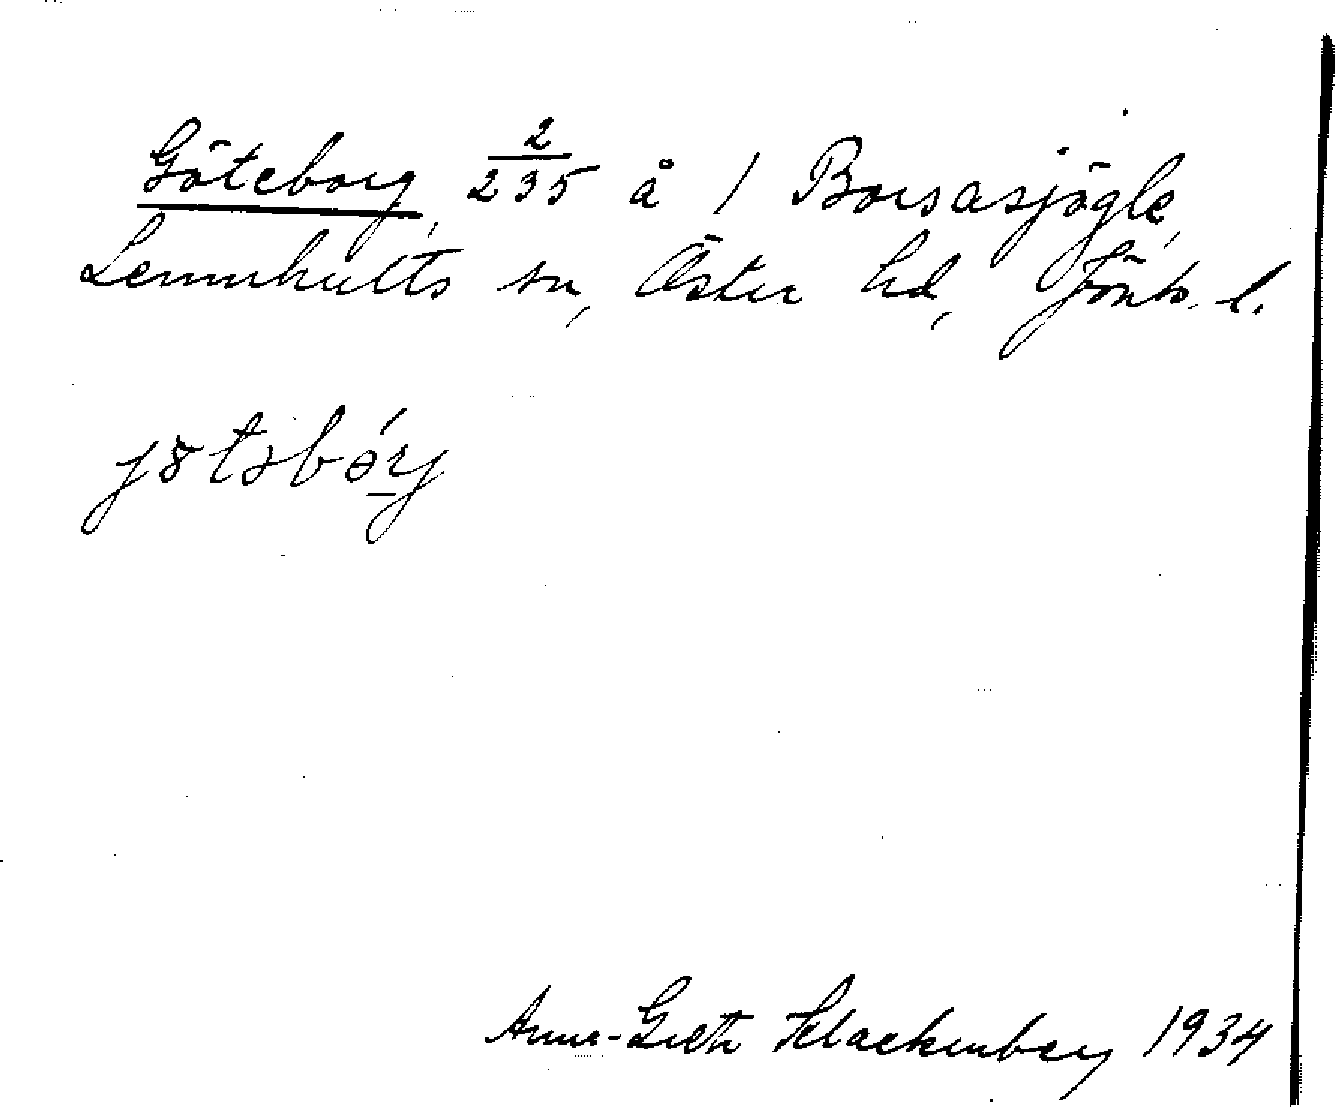 Göteborg, 2/235 å 1 Borsasjögle,
Lemnhults sn, Öster hd, Jönk. l.
jötəbórj
Anna-Greth Schackenberg 1934